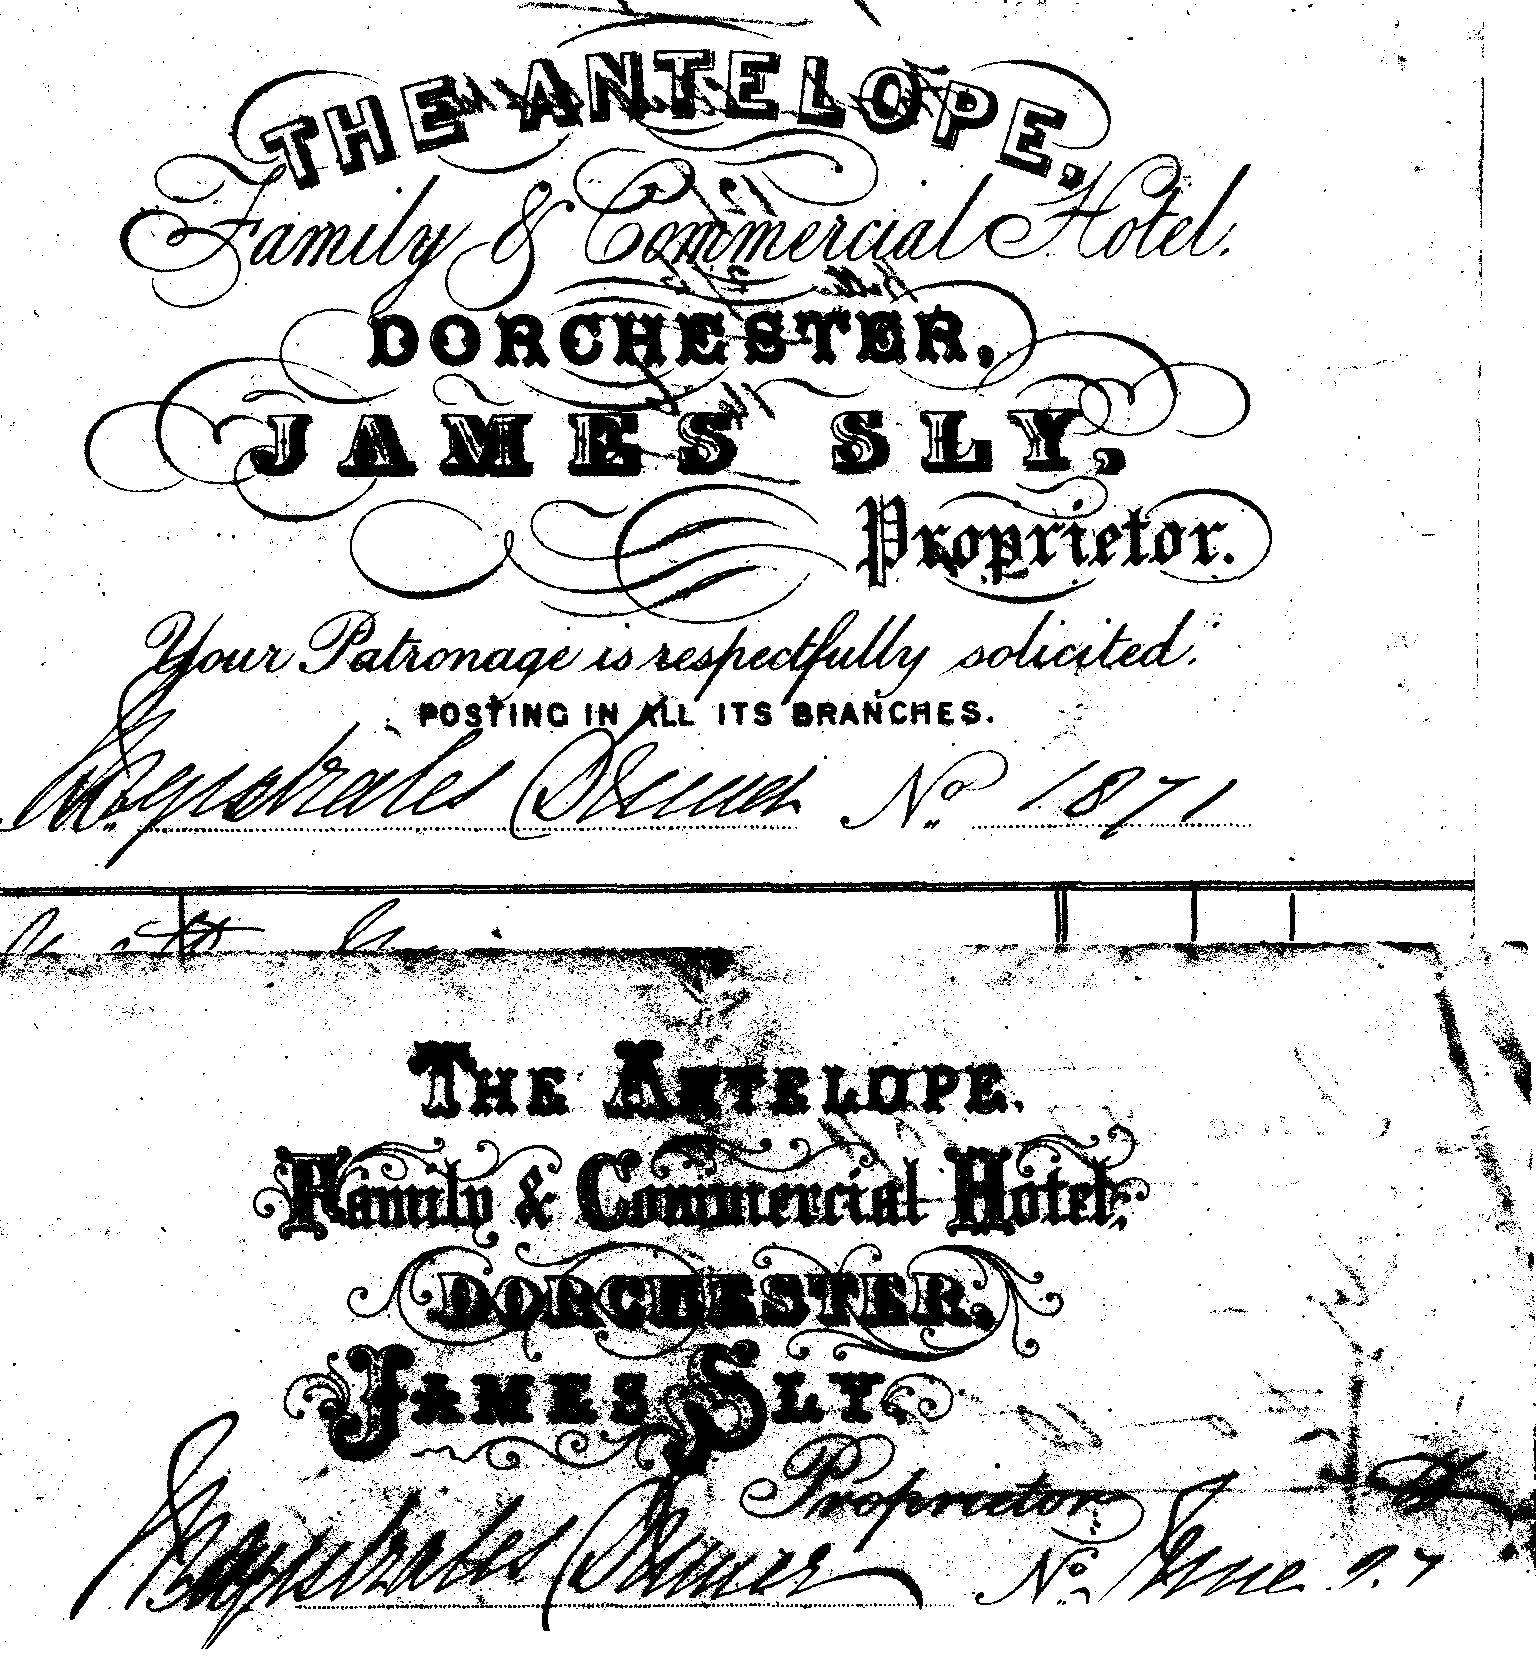 THE ANTELOPE,
Family & Commercial Hotel.
DORCHESTER,
JAMES SLY,
Proprietor.
Your Patronage is respectfully solicited.
POSTING IN ALL ITS BRANCHES.
Magistrates Dinner No. 1871
THE ANTELOPE.
Family & Commercial Hotel,
DORCHESTER,
JAMES SLY,
Proprietor,
Magistrates Dinner No. June 27